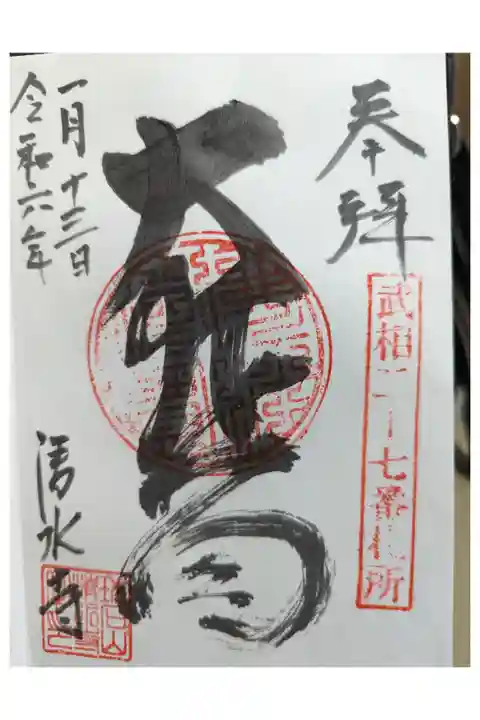 奉拝
武相二十七番札所
大悲
一月十三日
令和六年
清水寺